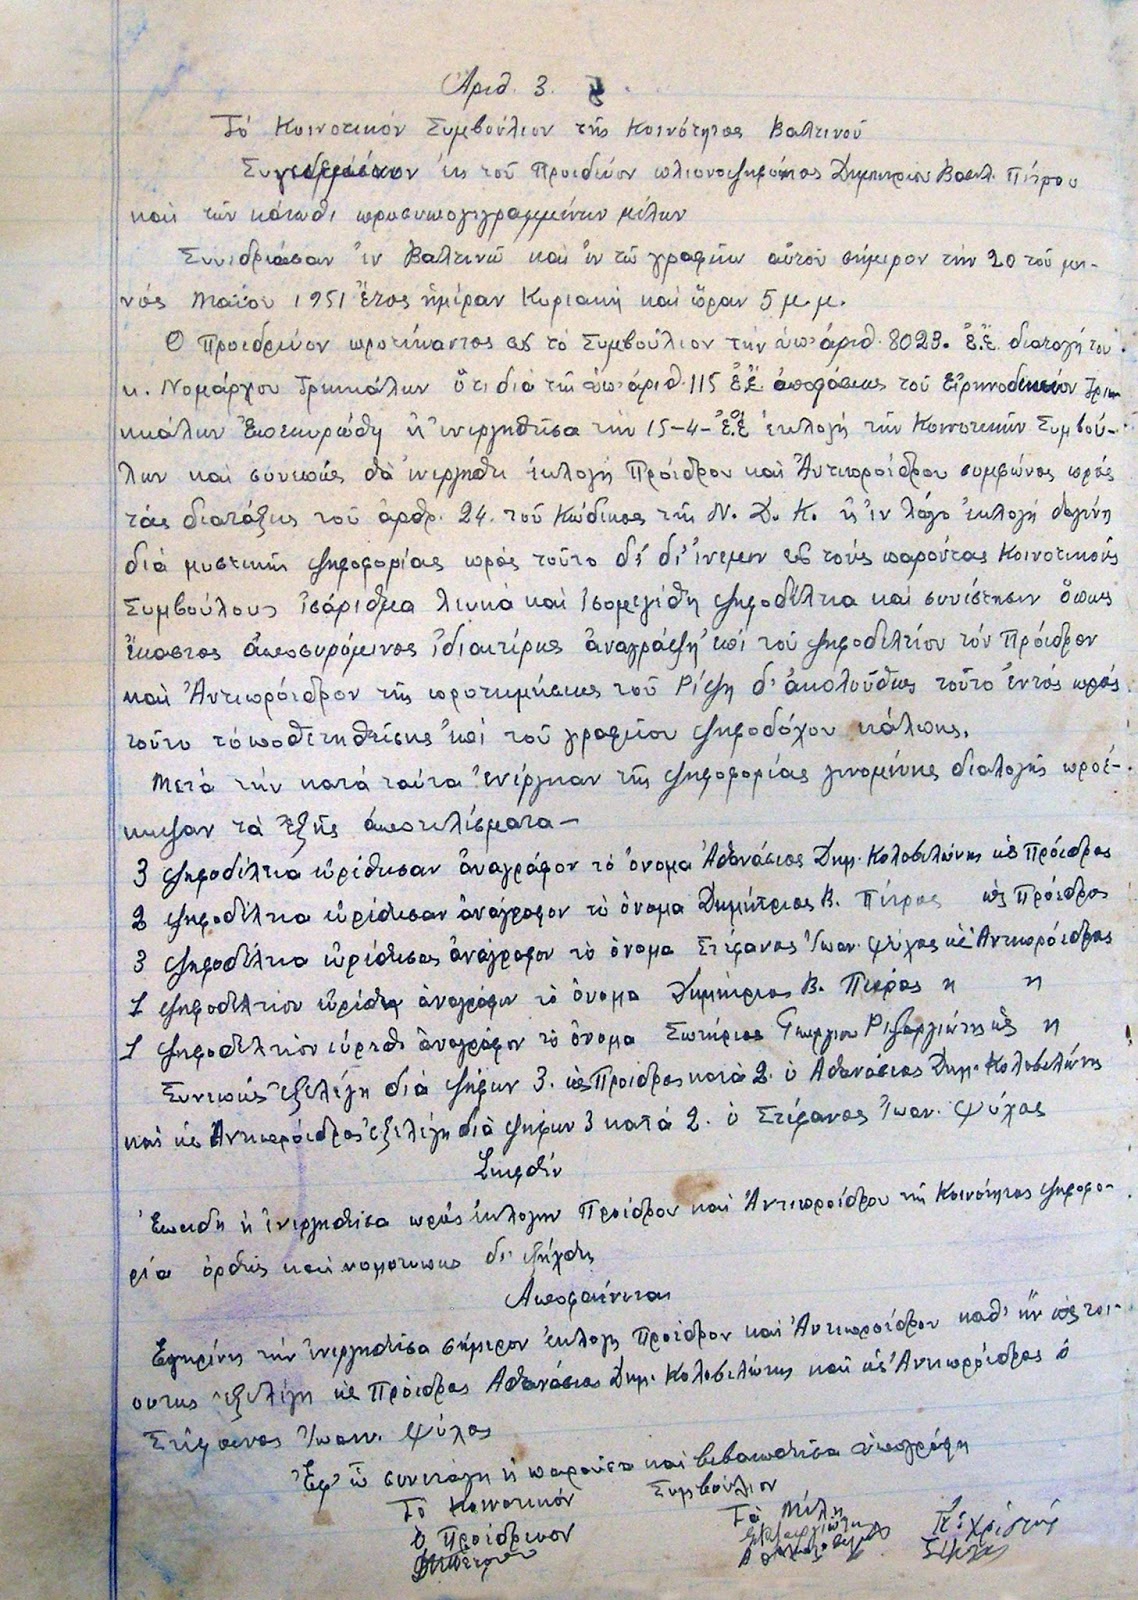 Ἀριθ. 3.
Τό Κοινοτικόν Συμβούλιον τῆς Κοινότητος Βαλτινοῦ
ἐκ τοῦ Προεδρεύον πλειονοψηφήσας Δημητρίου Βασιλ. Πέτρου
καί τῶν κάτωθι προσυπογεγραμμένων μελῶν
Συνεδρίασαν ἐν Βαλτινῷ καί ἐν τῷ γραφείῳ αὐτοῦ σήμερον τήν 20 τοῦ μη-
νός Μαΐου 1951 ἔτος ἡμέραν Κυριακή καί ὥραν 5 μ.μ.
Ὁ Προεδρεύον προτείναντος εἰς τό Συμβούλιον τήν ὑπ' ἀριθ. 8023. ἐ.ἔ. διαταγή του
κ. Νομάρχου Τρικκάλων ὅτι διά τῆς ὑπ' ἀριθ. 115 ἐ.ἔ. ἀποφάσεως τοῦ Εἰρηνοδικείου Τρι-
κκάλων Ἐπεκυρώθη ἡ ἐνεργηθεῖσα τήν 15-4-ἐ.ἔ ἐκλογή τῶν Κοινοτικῶν Συμβού-
λων καί συνεπῶς θά ἐνεργηθεῖ ἐκλογή Πρόεδρου καί Ἀντιπροέδρου συμφώνος πρός
τάς διατάξεις τοῦ ἀρθρ. 24. τοῦ Κώδικος τῆς Ν. Δ. Κ. ἡ ἐν λόγο ἐκλογή θά γίνη
διά μυστικῆς ψηφοφορίας πρός τοῦτο δέ δι' ἔνεμεν εἰς τούς παρόντας Κοινοτικούς
Συμβούλους ἰσάριθμα λευκά καί ἰσομεγέθη ψηφοδέλτια καί συνέστησεν ὅπως
ἕκαστος ἀποσυρόμενος ἰδιαιτέρως ἀναγράψη ἐπί τοῦ ψηφοδελτίου τόν Πρόεδρον
καί Ἀντιπρόεδρον τῆς προτιμήσεως τοῦ Ρίψη δ' ἀκολούθως τοῦτο ἐντός πρός
τοῦτο τόποθετηθείσης ἐπί τοῦ γραφείου ψηφοδόχου κάλπης.
Μετά τήν κατά ταῦτα ἐνέργειαν τῆς ψηφοφορίας γενομένης διαλογῆς προέ-
κυψαν τά ἑξῆς ἀποτελέσματα-
3 ψηφοδέλτια εὑρέθησαν ἀναγράφον τό ὄνομα Ἀθανάσιος Δημ. Κολοβελώνης ὡς Πρόεδρος
2 ψηφοδέλτια εὑρέθησαν ἀναγράφον τό ὄνομα Δημήτριος Β. Πέτρος ὡς Πρόεδρος
3 ψηφοδέλτια εὑρέθησας ἀναγράφον τό ὄνομα Στέφανος Ἰωαν. Ψύχος ὡς Ἀντιπρόεδρος
1 ψηφοδέλτιον εὑρέθη ἀναγράφον τό ὄνομα Δημήτριος Β. Πέτρος " "
1 ψηφοδέλτιον εὑρέθει ἀναγράφον τό ὄνομα Σωτήριος Γεωργίου Ριζαργιώτης ὡς "
Συνεπῶς ἐξελέγη διά ψήφων 3. ὡς Πρόεδρος κατά 2. ὁ Ἀθανάσιος Δημ. Κολοβελώνης
καί ὡς Ἀντιπρόεδρος ἐξελέγη διά ψήφων 3 κατά 2. ὁ Στέφανος Ἰωαν. Ψύχος
Σκεφθέν
Ἐπειδή ἡ ἐνεργηθεῖσα πρός ἐκλογήν Προέδρου καί Ἀντιπροέδρου τῆς Κοινότητος ψηφοφο-
ρία ὀρθῶς καί νομοτύπως
Ἀποφαίνεται
Ἐγκρίνει τήν ἐνεργηθεῖσα σήμερον ἐκλογή Προέδρου καί Ἀντιπροέδρου καθ' ἥν ὡς τοι-
ουτος ἐξελέγη ὡς Πρόεδρος Ἀθανάσιος Δημ. Κολοβελώνης καί ὡς Ἀντιπρόεδρος ὁ
Στέφανος Ἰωαν. Ψύχος
Ἐφ' ᾧ συνετάγη ἡ παροῦσα καί βεβαιωθεῖσα ὑπογράφη
Τό Κοινοτικόν Συμβούλιον
Ὁ Προεδρεύον Τά Μέλη